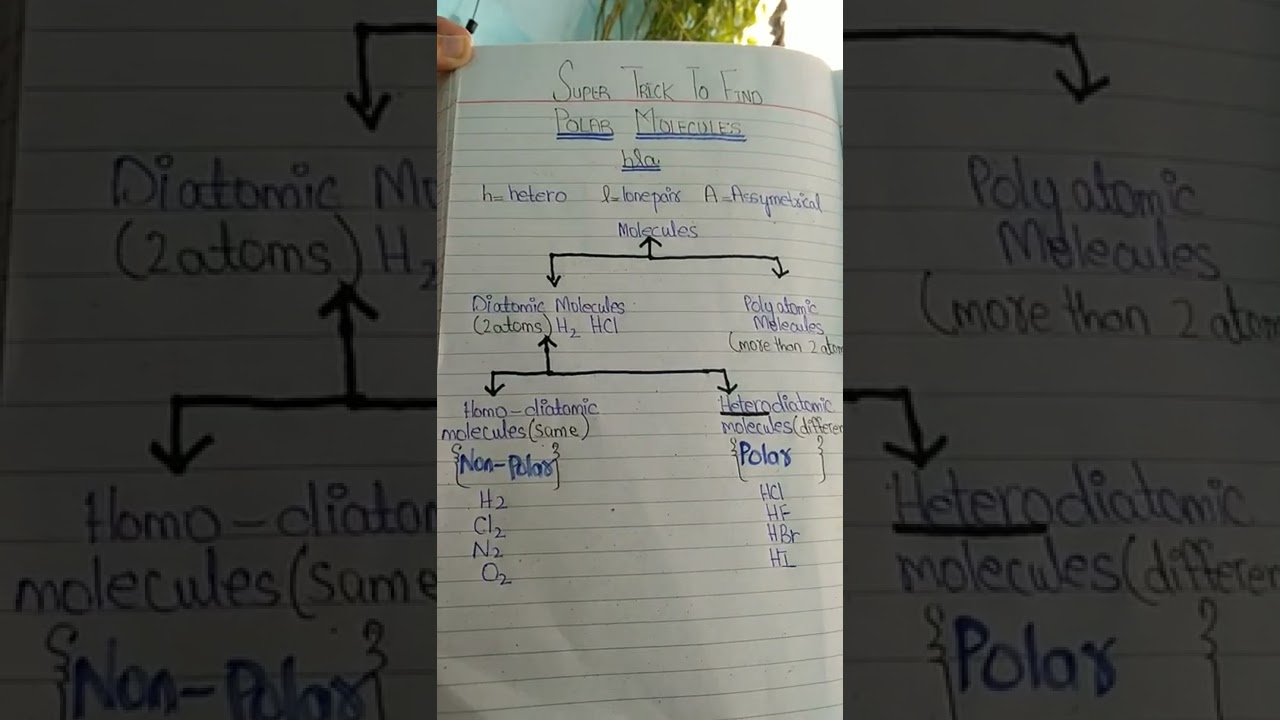 SUPER TRICK TO FIND
POLAR MOLECULES
hla
h=hetero l=lonepair A=Assymetrical
Molecules
Diatomic Molecules
(2atoms) H2 HCl
Polyatomic
Molecules
(more than 2 atom
Homo-diatomic
molecules(same)
{Non-Polar}
H2
Cl2
N2
O2
Heterodiatomic
molecules(differen
{Polar }
HCl
HF
HBr
HI